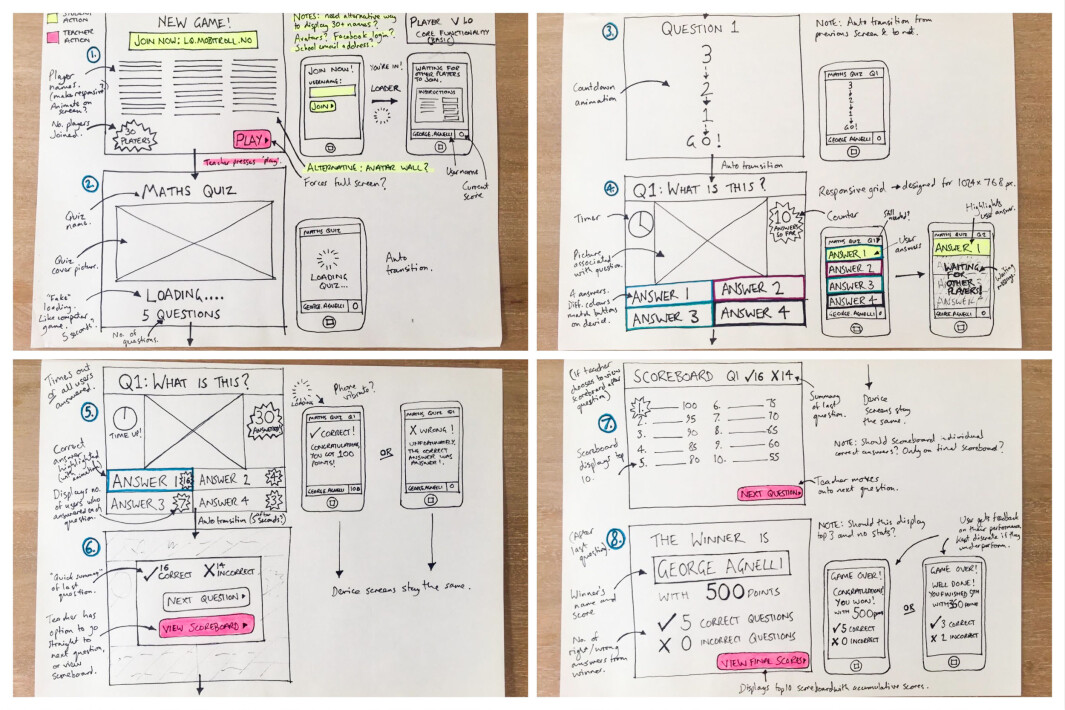 STUDENT
ACTION
TEACHER
ACTION
NEW GAME!
JOIN NOW: LQ.MOBITROLL.NO
NOTES: need alternative way
to display 30+ names?
Avatars? Facebook login?
School email address?
PLAYER V 1.0
CORE FUNCTIONALITY
(BASIC)
1.
Player
names.
(make responsive?)
Animate on
screen?
No. players
joined.
30
PLAYERS
PLAY
JOIN NOW!
USERNAME:
JOIN
YOU'RE IN!
LOADER
WAITING FOR
OTHER PLAYERS
TO JOIN.
INSTRUCTIONS
GEORGE AGNELLI 0
Username
Current
score
Teacher presses 'play'.
ALTERNATIVE: AVATAR WALL?
Forces full screen?
2.
MATHS QUIZ
Quiz
name.
Quiz
cover picture.
"Fake"
loading.
Like computer
game.
5 seconds?
LOADING....
5 QUESTIONS
No. of
questions.
MATHS QUIZ
LOADING
QUIZ...
GEORGE AGNELLI 0
Auto
transition.
3.
QUESTION 1
3
2
1
GO!
Countdown
animation
NOTE: Auto transition from
previous screen & to next.
MATHS QUIZ Q1
3
2
1
GO!
GEORGE AGNELLI 0
Auto transition
4.
Q1: WHAT IS THIS?
Timer
10
ANSWERS
SO FAR
Counter
Picture
associated
with question.
4 answers.
Diff. colours
match buttons
on device.
ANSWER 1
ANSWER 2
ANSWER 3
ANSWER 4
Responsive grid → designed for 1024 x 768 px.
Still needed?
Highlights
user answer.
User
answers
MATHS QUIZ Q1
ANSWER 1
ANSWER 2
ANSWER 3
ANSWER 4
GEORGE AGNELLI 0
MATHS QUIZ Q2
ANSWER 1
WAITING
FOR
OTHER
PLAYERS
ANSWER 4
GEORGE AGNELLI 0
Waiting
message.
Times out
or all users
answered.
5.
Q1: WHAT IS THIS?
TIME UP!
30
ANSWERS
Correct
answer is
highlighted
(with animation)
Displays no.
of users who
answered each
question.
ANSWER 1 16
ANSWER 2 4
ANSWER 3 7
ANSWER 4 3
Auto transition (after
5 seconds?)
Loading
Phone
vibrate?
MATHS QUIZ Q1
✓ CORRECT!
CONGRATULATIONS
YOU GOT 100
POINTS!
GEORGE AGNELLI 100
OR
MATHS QUIZ Q1
X WRONG!
UNFORTUNATELY,
THE CORRECT
ANSWER WAS
ANSWER 1.
GEORGE AGNELLI 0
Device screens stay the same.
6.
"Quick summary"
of last
question.
✓ 16 CORRECT
X 14 INCORRECT
NEXT QUESTION
VIEW SCOREBOARD
Teacher has
option to go
straight to
next question,
or view
scoreboard.
(If teacher
chooses to view
scoreboard after
question)
7.
SCOREBOARD Q1 ✓16 X14
Summary
of last
question.
Device
screens stay
the same.
1. 100
2. 95
3. 90
4. 85
5. 80
6. 75
7. 70
8. 65
9. 60
10. 55
Scoreboard
displays top
10.
NOTE: Should scoreboard individual
correct answers? Only on final scoreboard?
NEXT QUESTION
Teacher moves
onto next question.
(After
last
question).
8.
THE WINNER IS
GEORGE AGNELLI
WITH 500 POINTS
✓ 5 CORRECT QUESTIONS
X 0 INCORRECT QUESTIONS
VIEW FINAL SCORES
Winner's
name and
score
No. of
right/wrong
answers from
winner.
NOTE: Should this display
top 3 and no stats?
User gets feedback
on their performance.
Kept discrete if they
underperform.
GAME OVER!
CONGRATULATIONS
YOU WON!
WITH 500 POINTS
✓ 5 CORRECT
X 0 INCORRECT
OR
GAME OVER!
WELL DONE!
YOU FINISHED 5TH
WITH 350 POINTS
✓ 3 CORRECT
X 2 INCORRECT
Displays top 10 scoreboard with accumulative scores.